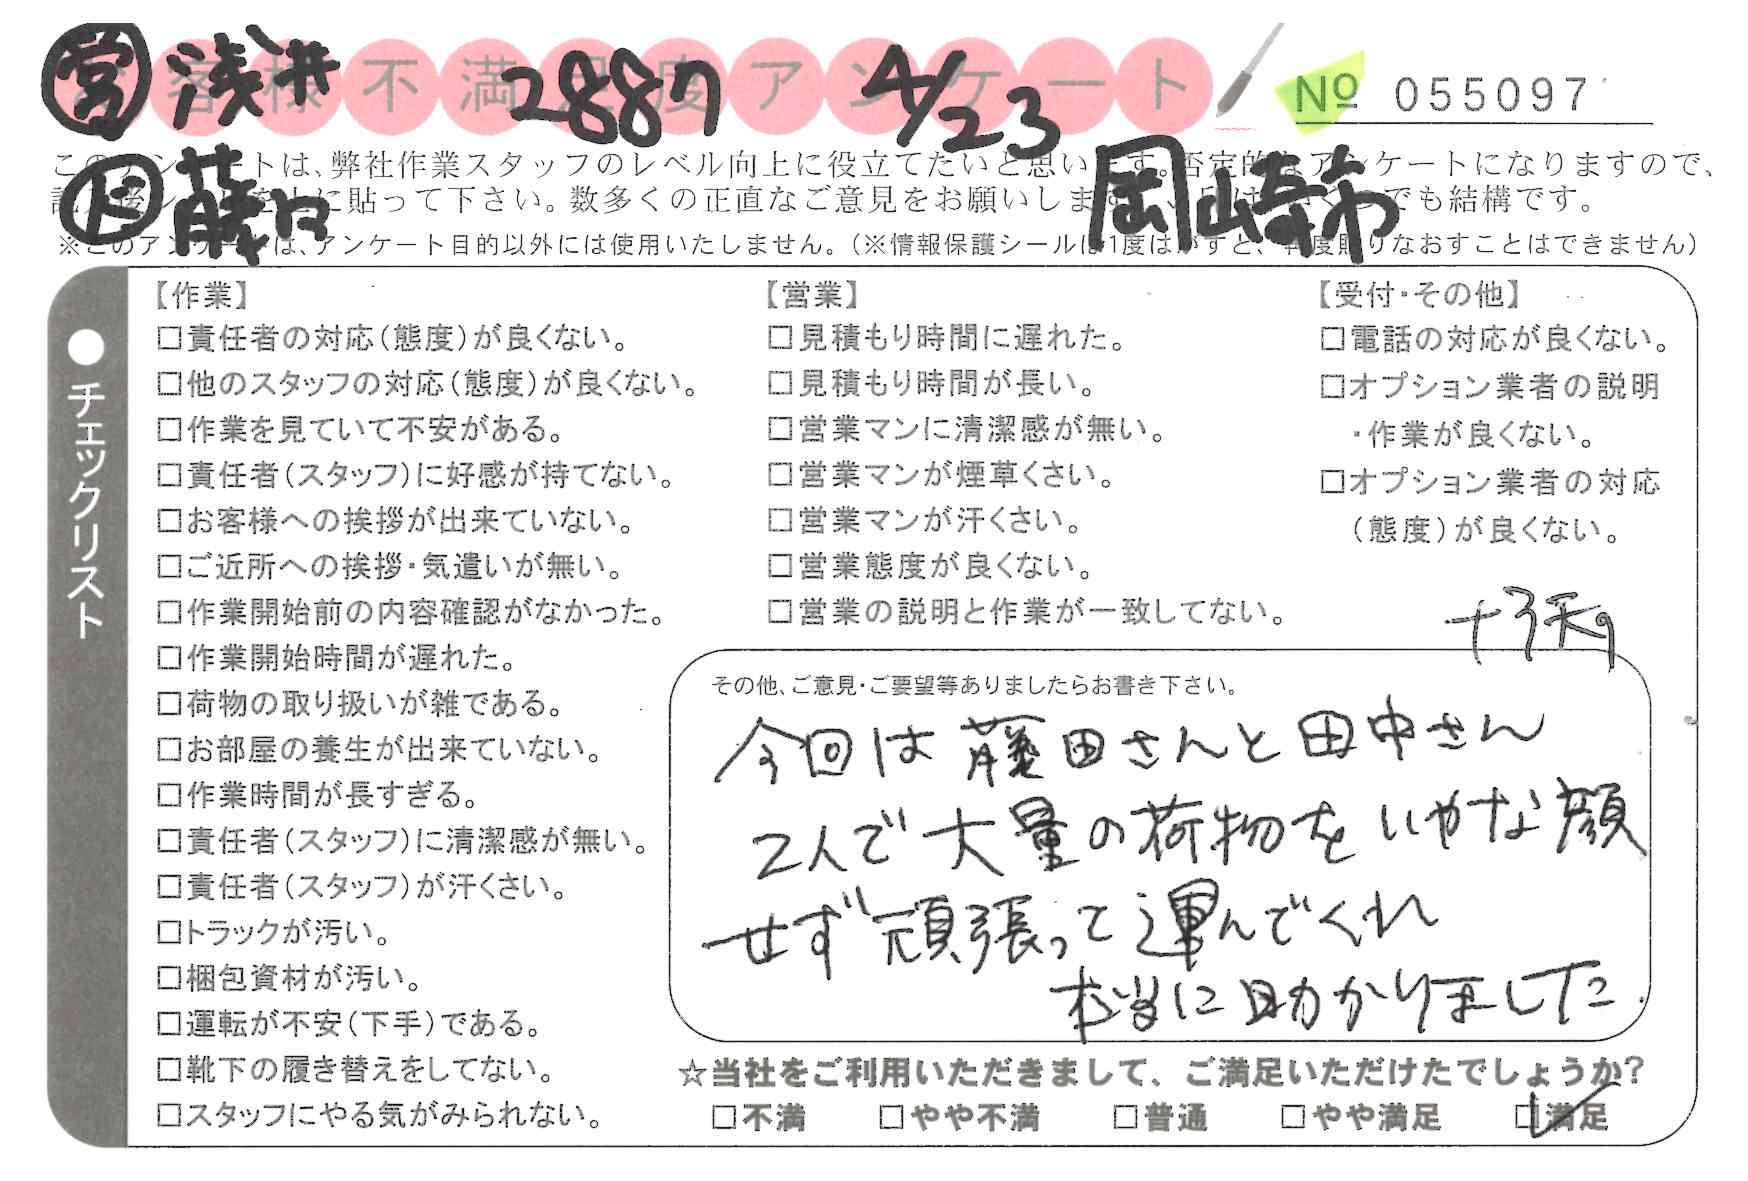 営 浅井 2887 4/23
お客様不満足度アンケート
№ 055097
ド 藤田 岡崎市
このアンケートは、弊社作業スタッフのレベル向上に役立てたいと思います。否定的なアンケートになりますので、
に貼って下さい。数多くの正直なご意見をお願いします でも結構です。
※このアンケートは、アンケート目的以外には使用いたしません。(※情報保護シールは1度はがすと、再度貼りなおすことはできません)
●チェックリスト
【作業】
□責任者の対応(態度)が良くない。
□他のスタッフの対応(態度)が良くない。
□作業を見ていて不安がある。
□責任者(スタッフ)に好感が持てない。
□お客様への挨拶が出来ていない。
□ご近所への挨拶・気遣いが無い。
□作業開始前の内容確認がなかった。
□作業開始時間が遅れた。
□荷物の取り扱いが雑である。
□お部屋の養生が出来ていない。
□作業時間が長すぎる。
□責任者(スタッフ)に清潔感が無い。
□責任者(スタッフ)が汗くさい。
□トラックが汚い。
□梱包資材が汚い。
□運転が不安(下手)である。
□靴下の履き替えをしてない。
□スタッフにやる気がみられない。
【営業】
□見積もり時間に遅れた。
□見積もり時間が長い。
□営業マンに清潔感が無い。
□営業マンが煙草くさい。
□営業マンが汗くさい。
□営業態度が良くない。
□営業の説明と作業が一致してない。
【受付・その他】
□電話の対応が良くない。
□オプション業者の説明
・作業が良くない。
□オプション業者の対応
(態度)が良くない。
その他、ご意見・ご要望等ありましたらお書き下さい。
今回は藤田さんと田中さん
2人で大量の荷物をいやな顔
せず頑張って運んでくれ
本当に助かりました.
☆当社をご利用いただきまして、ご満足いただけたでしょうか?
□不満 □やや不満 □普通 □やや満足 □満足